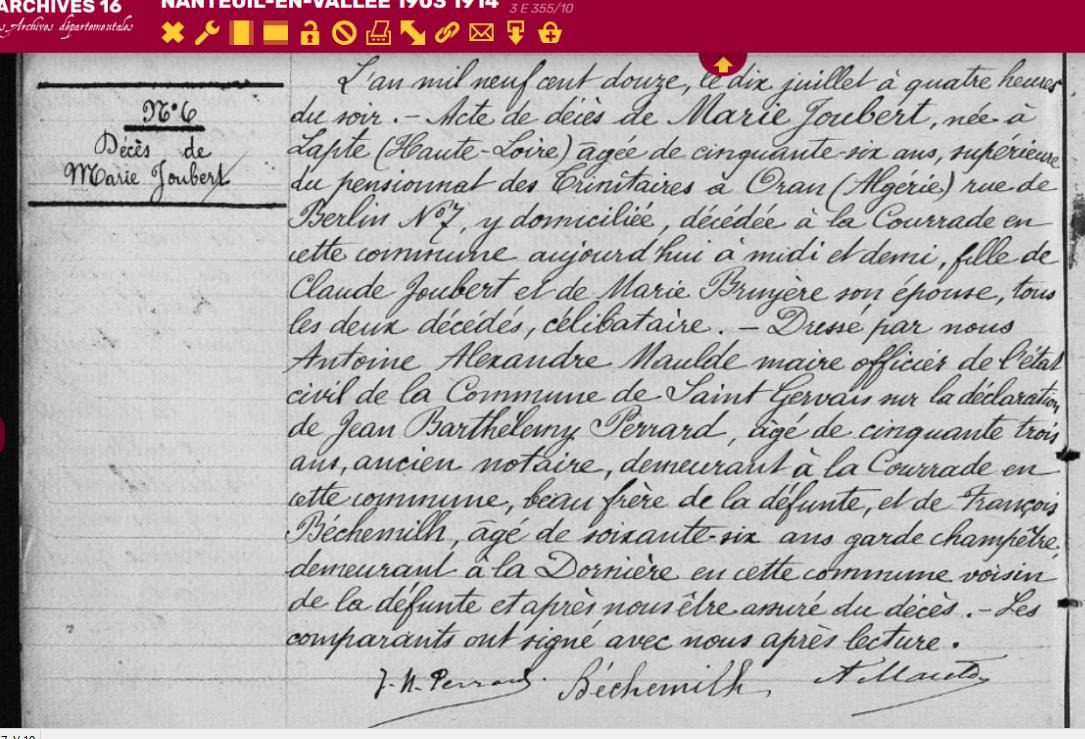 ARCHIVES 16
s Archives départementales
NANTEUIL-EN-VALLEE 1903 1914 3 E 355/10
N°6
Décès de
Marie Joubert
L'an mil neuf cent douze, le dix juillet à quatre heures
du soir. - Acte de décès de Marie Joubert, née à
Lapte (Haute-Loire) âgée de cinquante-six ans, supérieure
du pensionnat des Trinitaires à Oran (Algérie) rue de
Berlin N°7, y domiciliée, décédée à la Courrade en
cette commune aujourd'hui à midi et demi, fille de
Claude Joubert et de Marie Bruyere son épouse, tous
les deux décédés, célibataire. - Dressé par nous
Antoine Alexandre Maulde maire officier de l'état
civil de la Commune de Saint Gervais sur la déclaration
de Jean Barthélemy Perrard, âgé de cinquante trois
ans, ancien notaire, demeurant à la Courrade en
cette commune, beau frère de la défunte, et de François
Béchemilh, âgé de soixante-six ans garde champêtre,
demeurant à la Dornière en cette commune voisin
de la défunte et après nous être assuré du décès. - Les
comparants ont signé avec nous après lecture.
Béchemilh